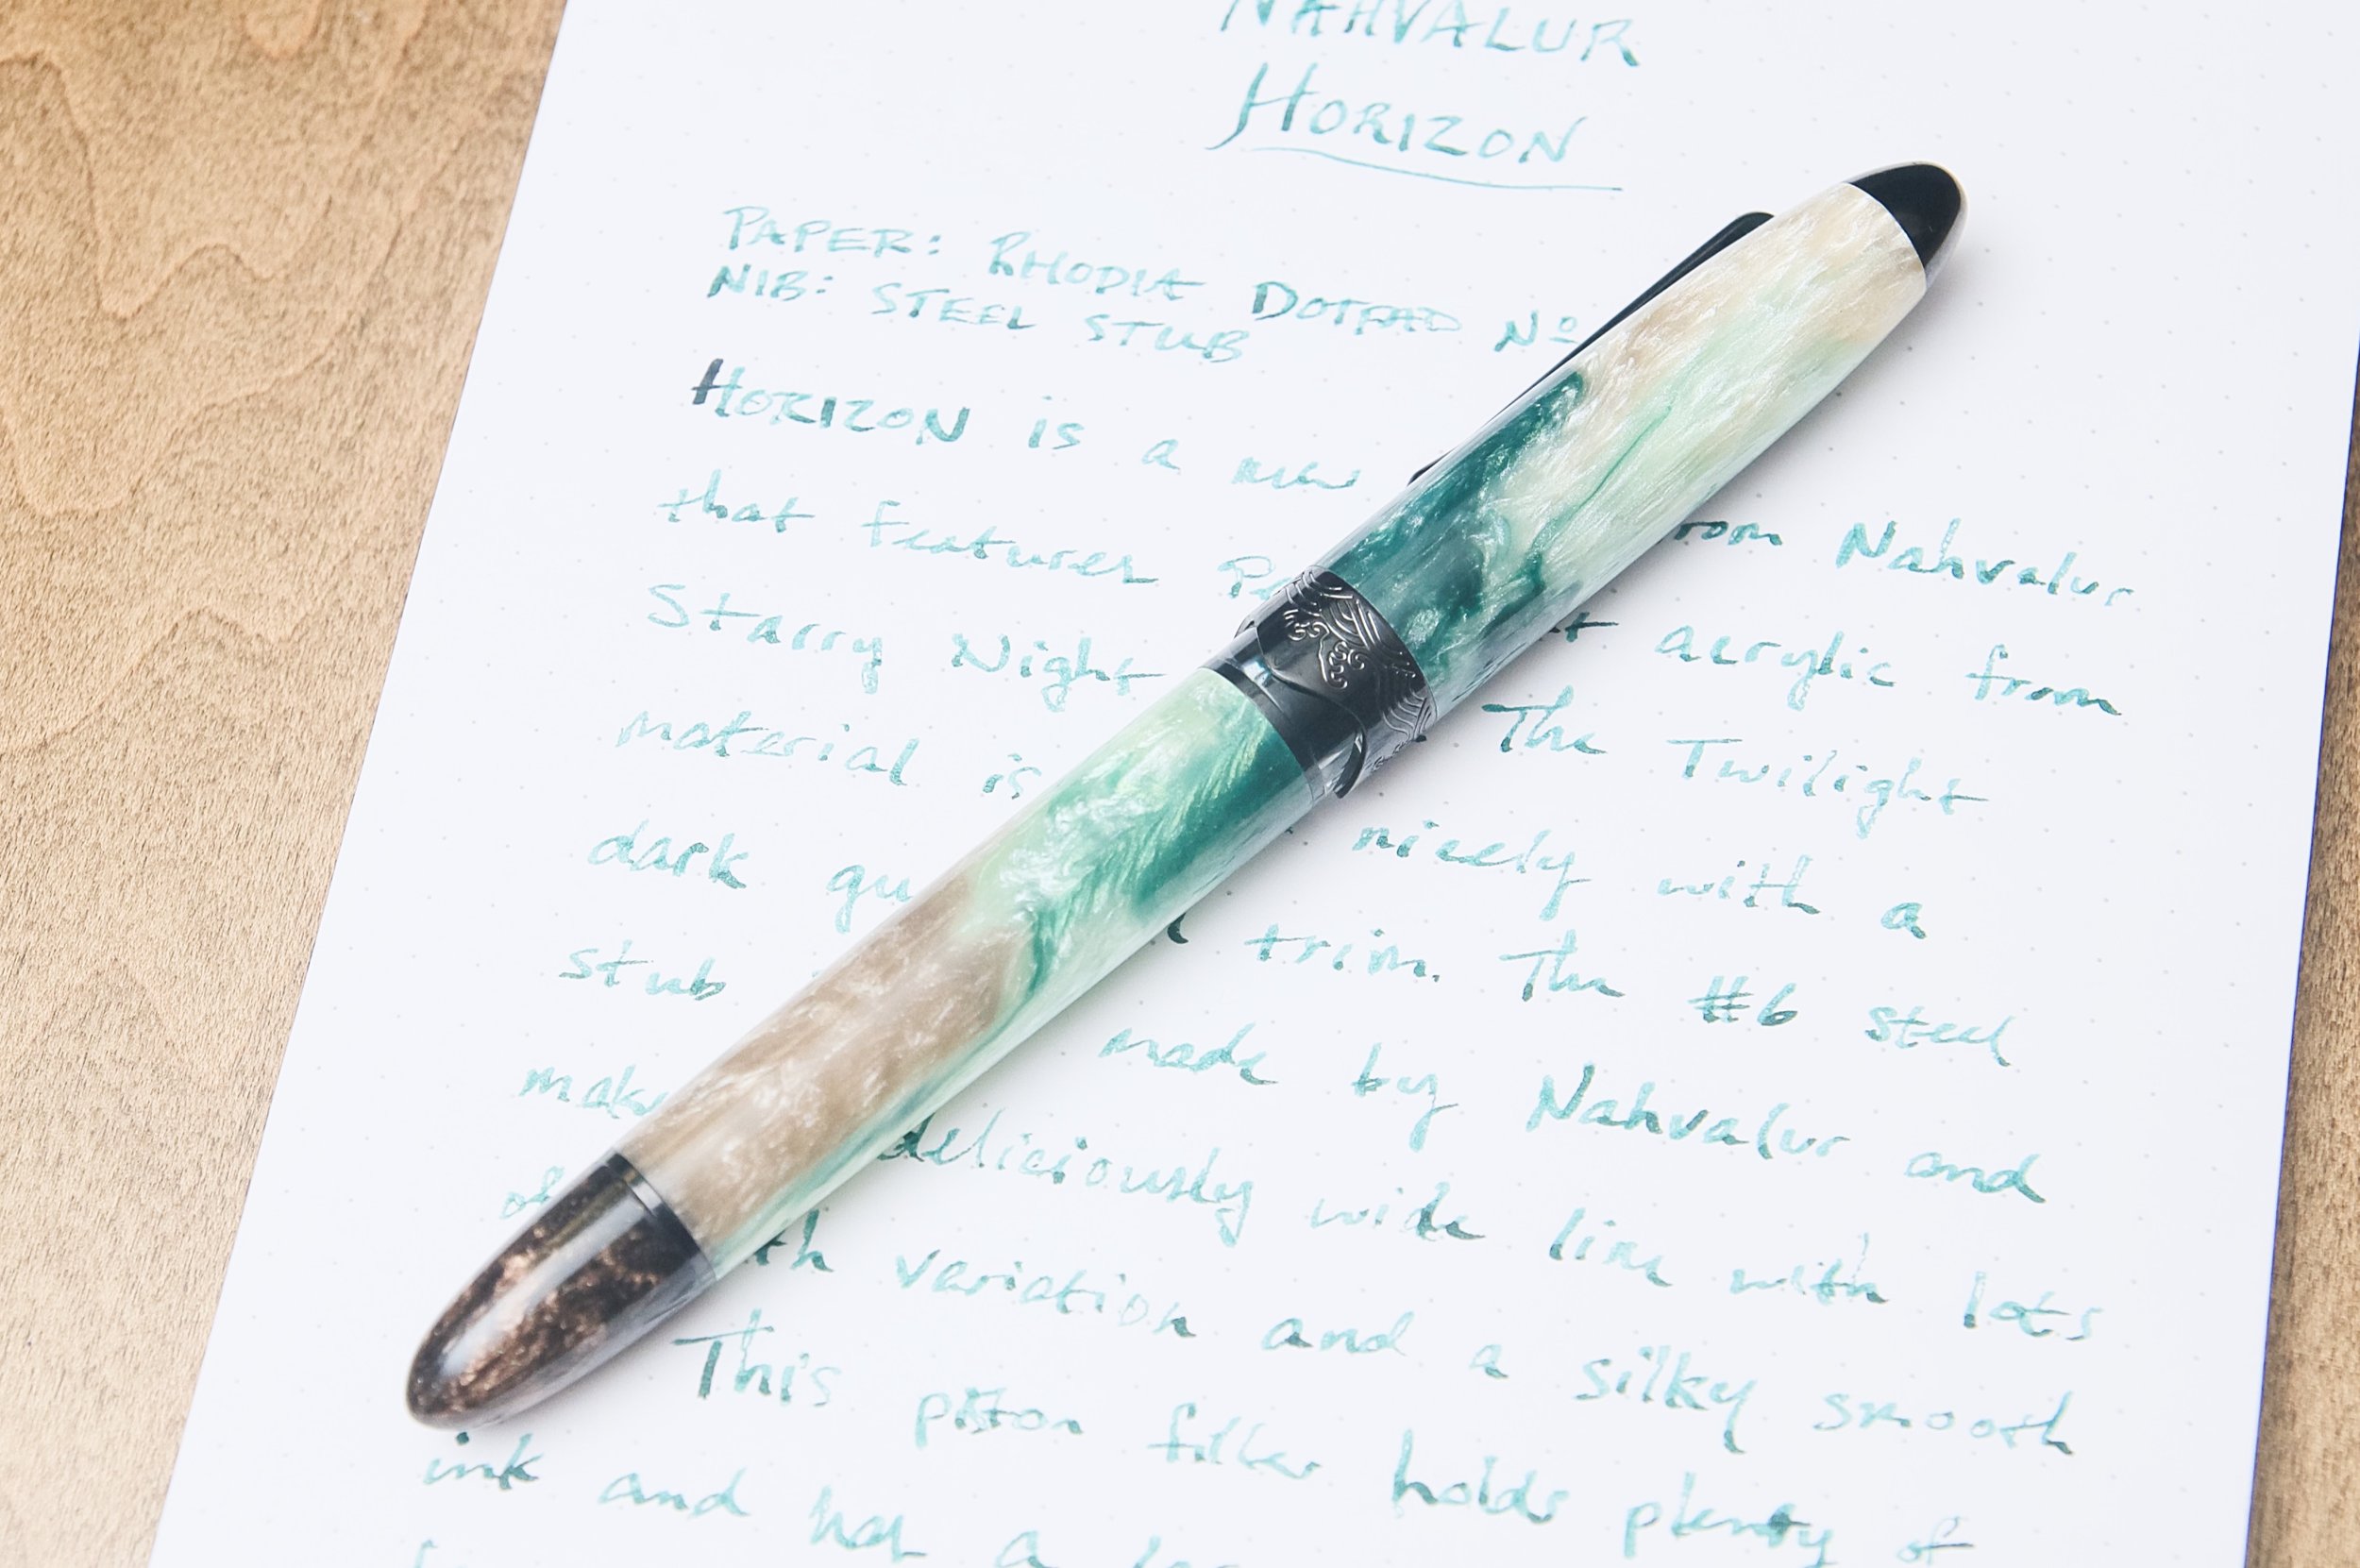 NAHVALUR
HORIZON
PAPER: RHODIA DOTPAD Nº
NIB: STEEL STUB
HORIZON is a new Nahvalur
that features acrylic from
Starry Night The Twilight
material is nicely with a
dark trim. The #6 steel
stub made by Nahvalur and
deliciously wide line with lots
of variation and a silky smooth
This piston filler holds plenty of
ink and has a